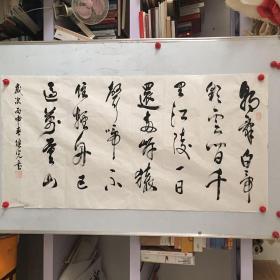 朝辭白帝
彩雲間千
里江陵一日
還兩岸猿
聲啼不
住輕舟已
過萬重山
歲次丙申春